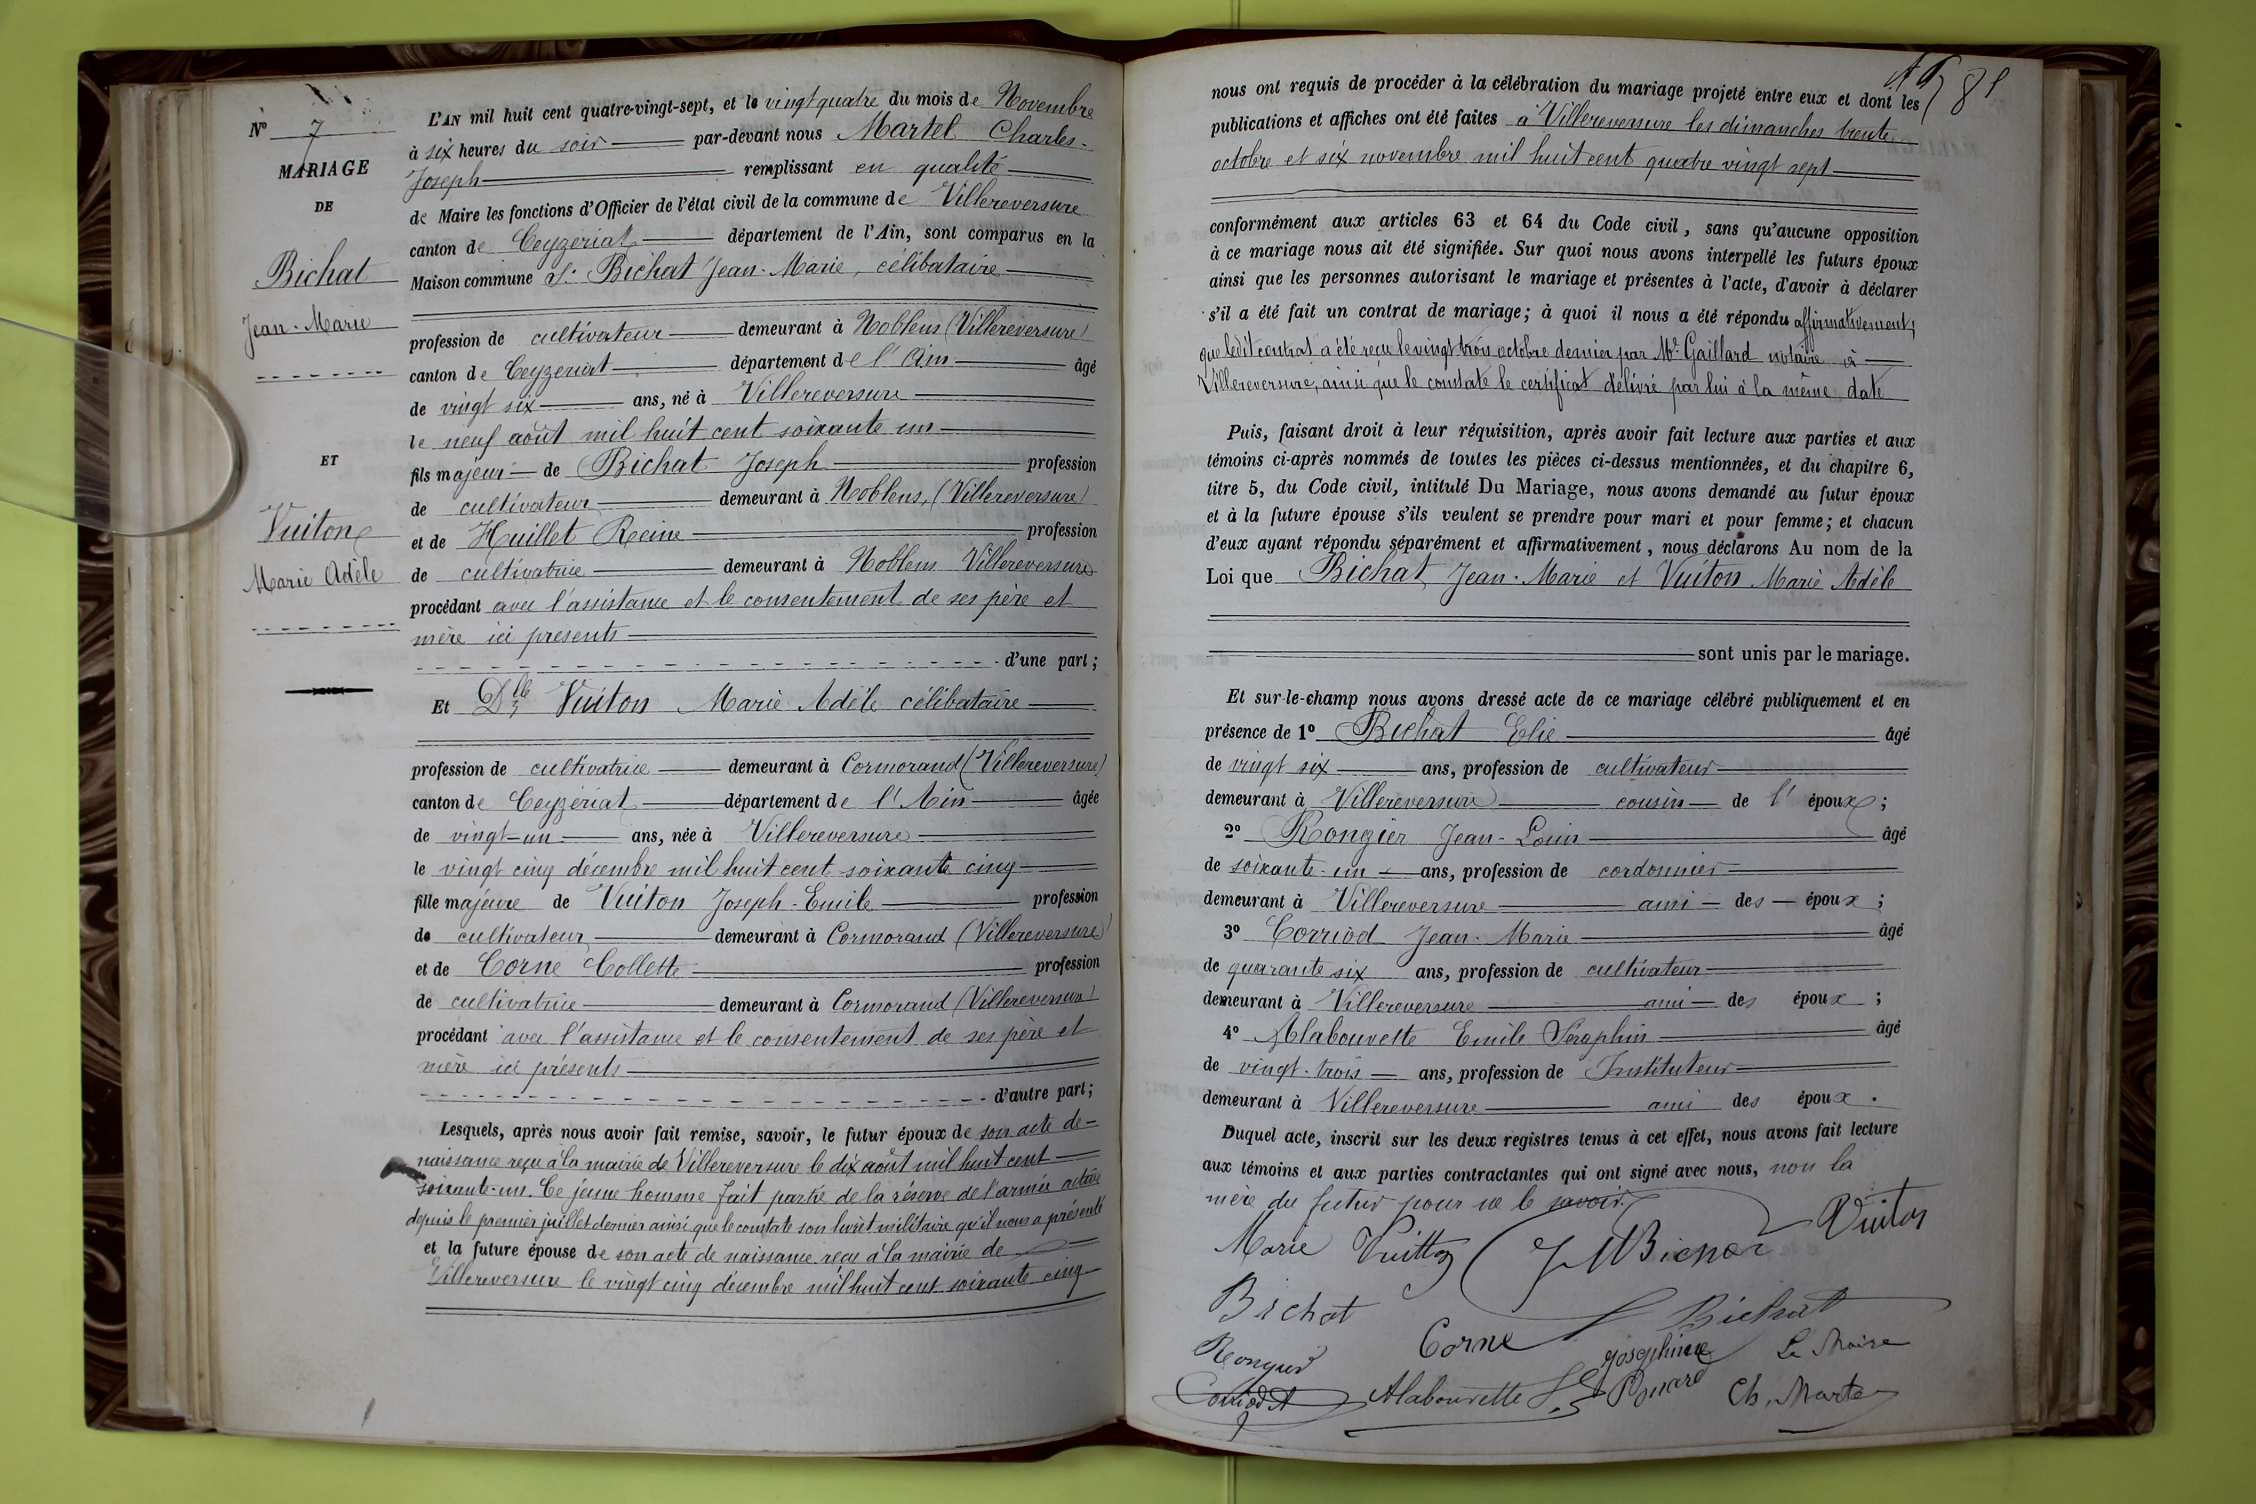 N° 7
MARIAGE
DE
Bichat
Jean-Marie
ET
Vuiton
Marie Adèle
L'AN mil huit cent quatre-vingt-sept, et le vingt quatre du mois de Novembre
à six heures du soir par-devant nous Martel Charles-
Joseph remplissant en qualité
de Maire les fonctions d'Officier de l'état civil de la commune de Villereversure
canton de Ceyzeriat département de l'Ain, sont comparus en la
Maison commune Sr Bichat Jean-Marie, célibataire
profession de cultivateur demeurant à Noblens (Villereversure)
canton de Ceyzeriat département de l'Ain âgé
de vingt six ans, né à Villereversure
le neuf août mil huit cent soixante un
fils majeur de Bichat Joseph profession
de cultivateur demeurant à Noblens, (Villereversure)
et de Huillet Reine profession
de cultivatrice demeurant à Noblens Villereversure
procédant avec l'assistance et le consentement de ses père et
mère ici présents
d'une part;
Et Dlle Vuiton Marie Adèle célibataire
profession de cultivatrice demeurant à Cormorand (Villereversure)
canton de Ceyzériat département de l'Ain âgée
de vingt-un ans, née à Villereversure
le vingt cinq décembre mil huit cent soixante cinq
fille majeure de Vuiton Joseph-Emile profession
de cultivateur demeurant à Cormorand (Villereversure)
et de Corne Collette profession
de cultivatrice demeurant à Cormorand (Villereversure)
procédant avec l'assistance et le consentement de ses père et
mère ici présents
d'autre part;
Lesquels, après nous avoir fait remise, savoir, le futur époux de son acte de
naissance reçu à la mairie de Villereversure le dix août mil huit cent
soixante-un. Ce jeune homme fait partie de la réserve de l'armée active
depuis le premier juillet dernier ainsi que le constate son livret militaire qu'il nous a présenté
et la future épouse de son acte de naissance reçu à la mairie de
Villereversure le vingt cinq décembre mil huit cent soixante cinq
81
nous ont requis de procéder à la célébration du mariage projeté entre eux et dont les
publications et affiches ont été faites à Villereversure les dimanches trente
octobre et six novembre mil huit cent quatre vingt sept
conformément aux articles 63 et 64 du Code civil, sans qu'aucune opposition
à ce mariage nous ait été signifiée. Sur quoi nous avons interpellé les futurs époux
ainsi que les personnes autorisant le mariage et présentes à l'acte, d'avoir à déclarer
s'il a été fait un contrat de mariage; à quoi il nous a été répondu affirmativement;
que ledit contrat a été reçu le vingt trois octobre dernier par Me Gaillard notaire à
Villereversure, ainsi que le constate le certificat délivré par lui à la même date
Puis, faisant droit à leur réquisition, après avoir fait lecture aux parties et aux
témoins ci-après nommés de toutes les pièces ci-dessus mentionnées, et du chapitre 6,
titre 5, du Code civil, intitulé Du Mariage, nous avons demandé au futur époux
et à la future épouse s'ils veulent se prendre pour mari et pour femme; et chacun
d'eux ayant répondu séparément et affirmativement, nous déclarons Au nom de la
Loi que Bichat Jean-Marie et Vuiton Marie Adèle
sont unis par le mariage.
Et sur-le-champ nous avons dressé acte de ce mariage célébré publiquement et en
présence de 1° Bichat Elie âgé
de vingt six ans, profession de cultivateur
demeurant à Villereversure cousin de l' époux;
2° Rongier Jean-Louis âgé
de soixante-un ans, profession de cordonnier
demeurant à Villereversure ami des époux;
3° Corriod Jean-Marie âgé
de quarante six ans, profession de cultivateur
demeurant à Villereversure ami des époux;
4° Alabouvette Emile Séraphin âgé
de vingt-trois ans, profession de Instituteur
demeurant à Villereversure ami des époux.
Duquel acte, inscrit sur les deux registres tenus à cet effet, nous avons fait lecture
aux témoins et aux parties contractantes qui ont signé avec nous, non la
mère du futur pour ne le savoir.
Marie Vuitton J M Bichat Vuiton
Bichat Bichat
Corne
Rongier Josephine Le Maire
Corriod Alabouvette Ch. Martel